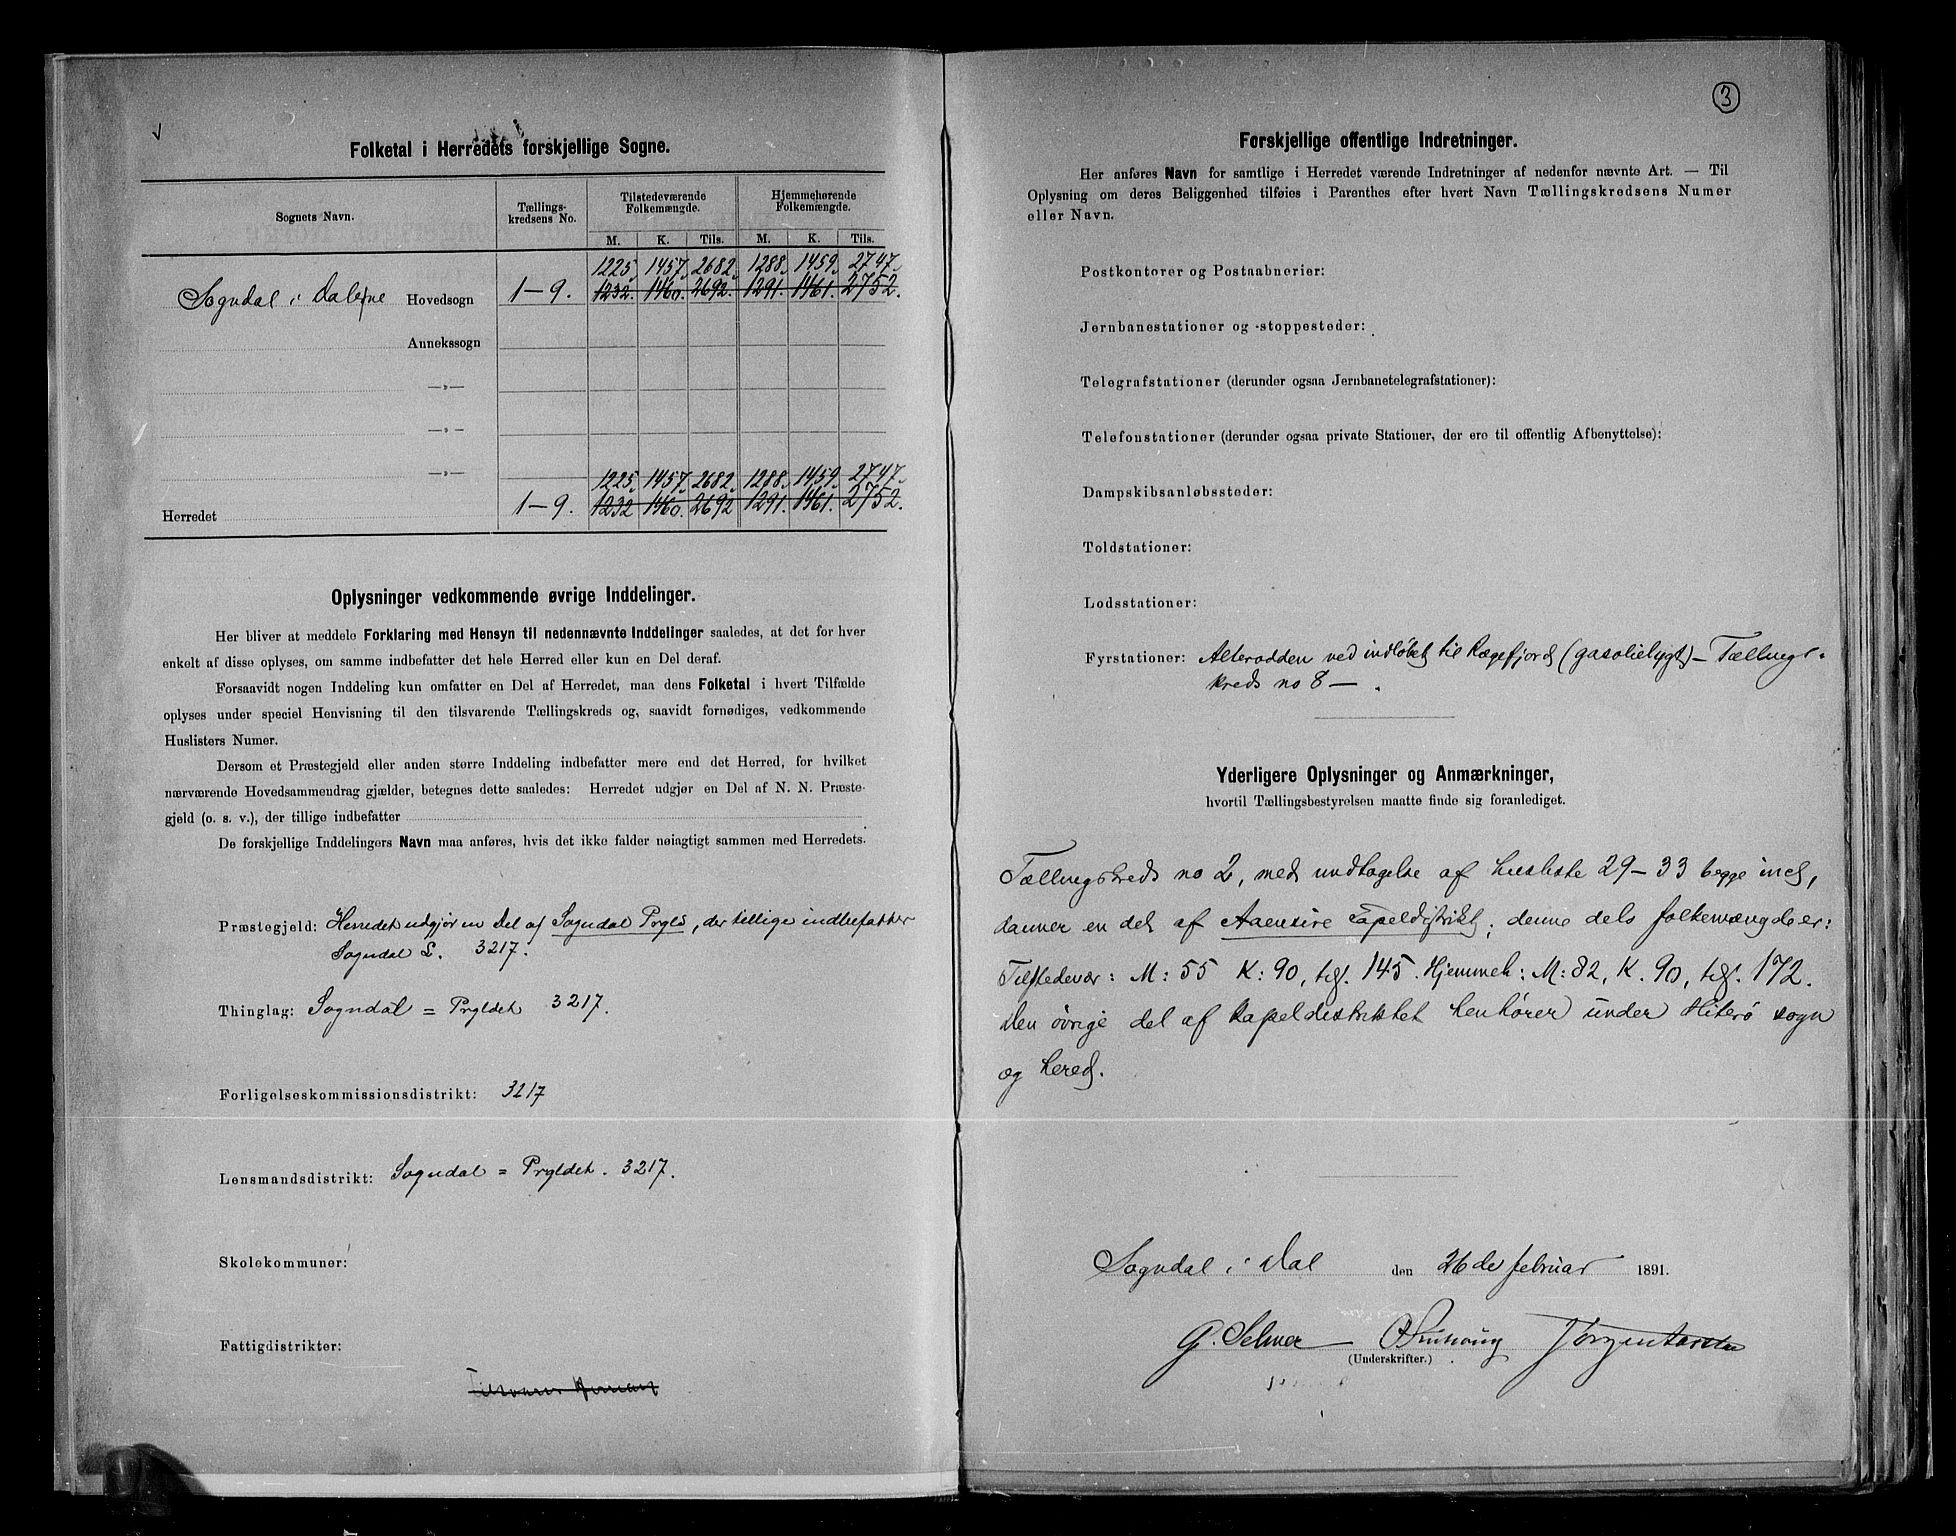 Folketal i Herredets forskjellige Sogne.
Sognets Navn.
Tællings-
kredsens No.
Tilstedeværende
Folkemængde.
Hjemmehørende
Folkemængde.
M. K. Tils. M. K. Tils.
1225. 1457. 2682. 1288. 1459. 2747.
Sogndal i Dalene Hovedsogn 1–9. 1232. 1460. 2692. 1291. 1461. 2752.
Annekssogn
—„—
—„—
—„—
1225. 1457. 2682. 1288. 1459. 2747.
Herredet 1–9. 1232 1460. 2692 1291. 1461. 2752.
Oplysninger vedkommende øvrige Inddelinger.
Her bliver at meddele Forklaring med Hensyn til nedennævnte Inddelinger saaledes, at det for hver
enkelt af disse oplyses, om samme indbefatter det hele Herred eller kun en Del deraf.
Forsaavidt nogen Inddeling kun omfatter en Del af Herredet, maa dens Folketal i hvert Tilfælde
oplyses under speciel Henvisning til den tilsvarende Tællingskreds og, saavidt fornødiges, vedkommende
Huslisters Numer.
Dersom et Præstegjeld eller anden større Inddeling indbefatter mere end det Herred, for hvilket
nærværende Hovedsammendrag gjælder, betegnes dette saaledes: Herredet udgjør en Del af N. N. Præste-
gjeld (o. s. v.), der tillige indbefatter
De forskjellige Inddelingers Navn maa anføres, hvis det ikke falder nøiagtigt sammen med Herredets.
Præstegjeld: Herredet udgjør en Del af Sogndal Prgld, der tillige indbefatter
Sogndal L. 3217.
Thinglag: Sogndal = Prgldet 3217.
Forligelseskommissionsdistrikt: 3217
Lensmandsdistrikt: Sogndal = Prgldet. 3217.
Skolekommuner:
Fattigdistrikter:
3
Forskjellige offentlige Indretninger.
Her anføres Navn for samtlige i Herredet værende Indretninger af nedenfor nævnte Art. — Til
Oplysning om deres Beliggenhed tilføies i Parenthes efter hvert Navn Tællingskredsens Numer
eller Navn.
Postkontorer og Postaabnerier:
Jernbanestationer og -stoppesteder:
Telegrafstationer (derunder ogsaa Jernbanetelegrafstationer):
Telefonstationer (derunder ogsaa private Stationer, der ere til offentlig Afbenyttelse):
Dampskibsanløbssteder:
Toldstationer:
Lodsstationer:
Fyrstationer: Alterodden ved indløbet til Rægefjord (gasolielygt) – Tællings-
kreds no 8 — .
Yderligere Oplysninger og Anmærkninger,
hvortil Tællingsbestyrelsen maatte finde sig foranlediget.
Tællingskreds no 2, med undtagelse af husliste 29–33 begge incl,
danner en del af Aaensire Capeldistrikt; denne dels folkemængde er:
Tilstedevær: M: 55 K: 90, tils. 145. Hjemmeh: M: 82, K. 90, tils. 172.
Den øvrige del af Kapeldistriktet henhører under Hiterø sogn
og hered.
Sogndal i Dal den 26de februar 1891.
G. Selmer
(Underskrifter.)